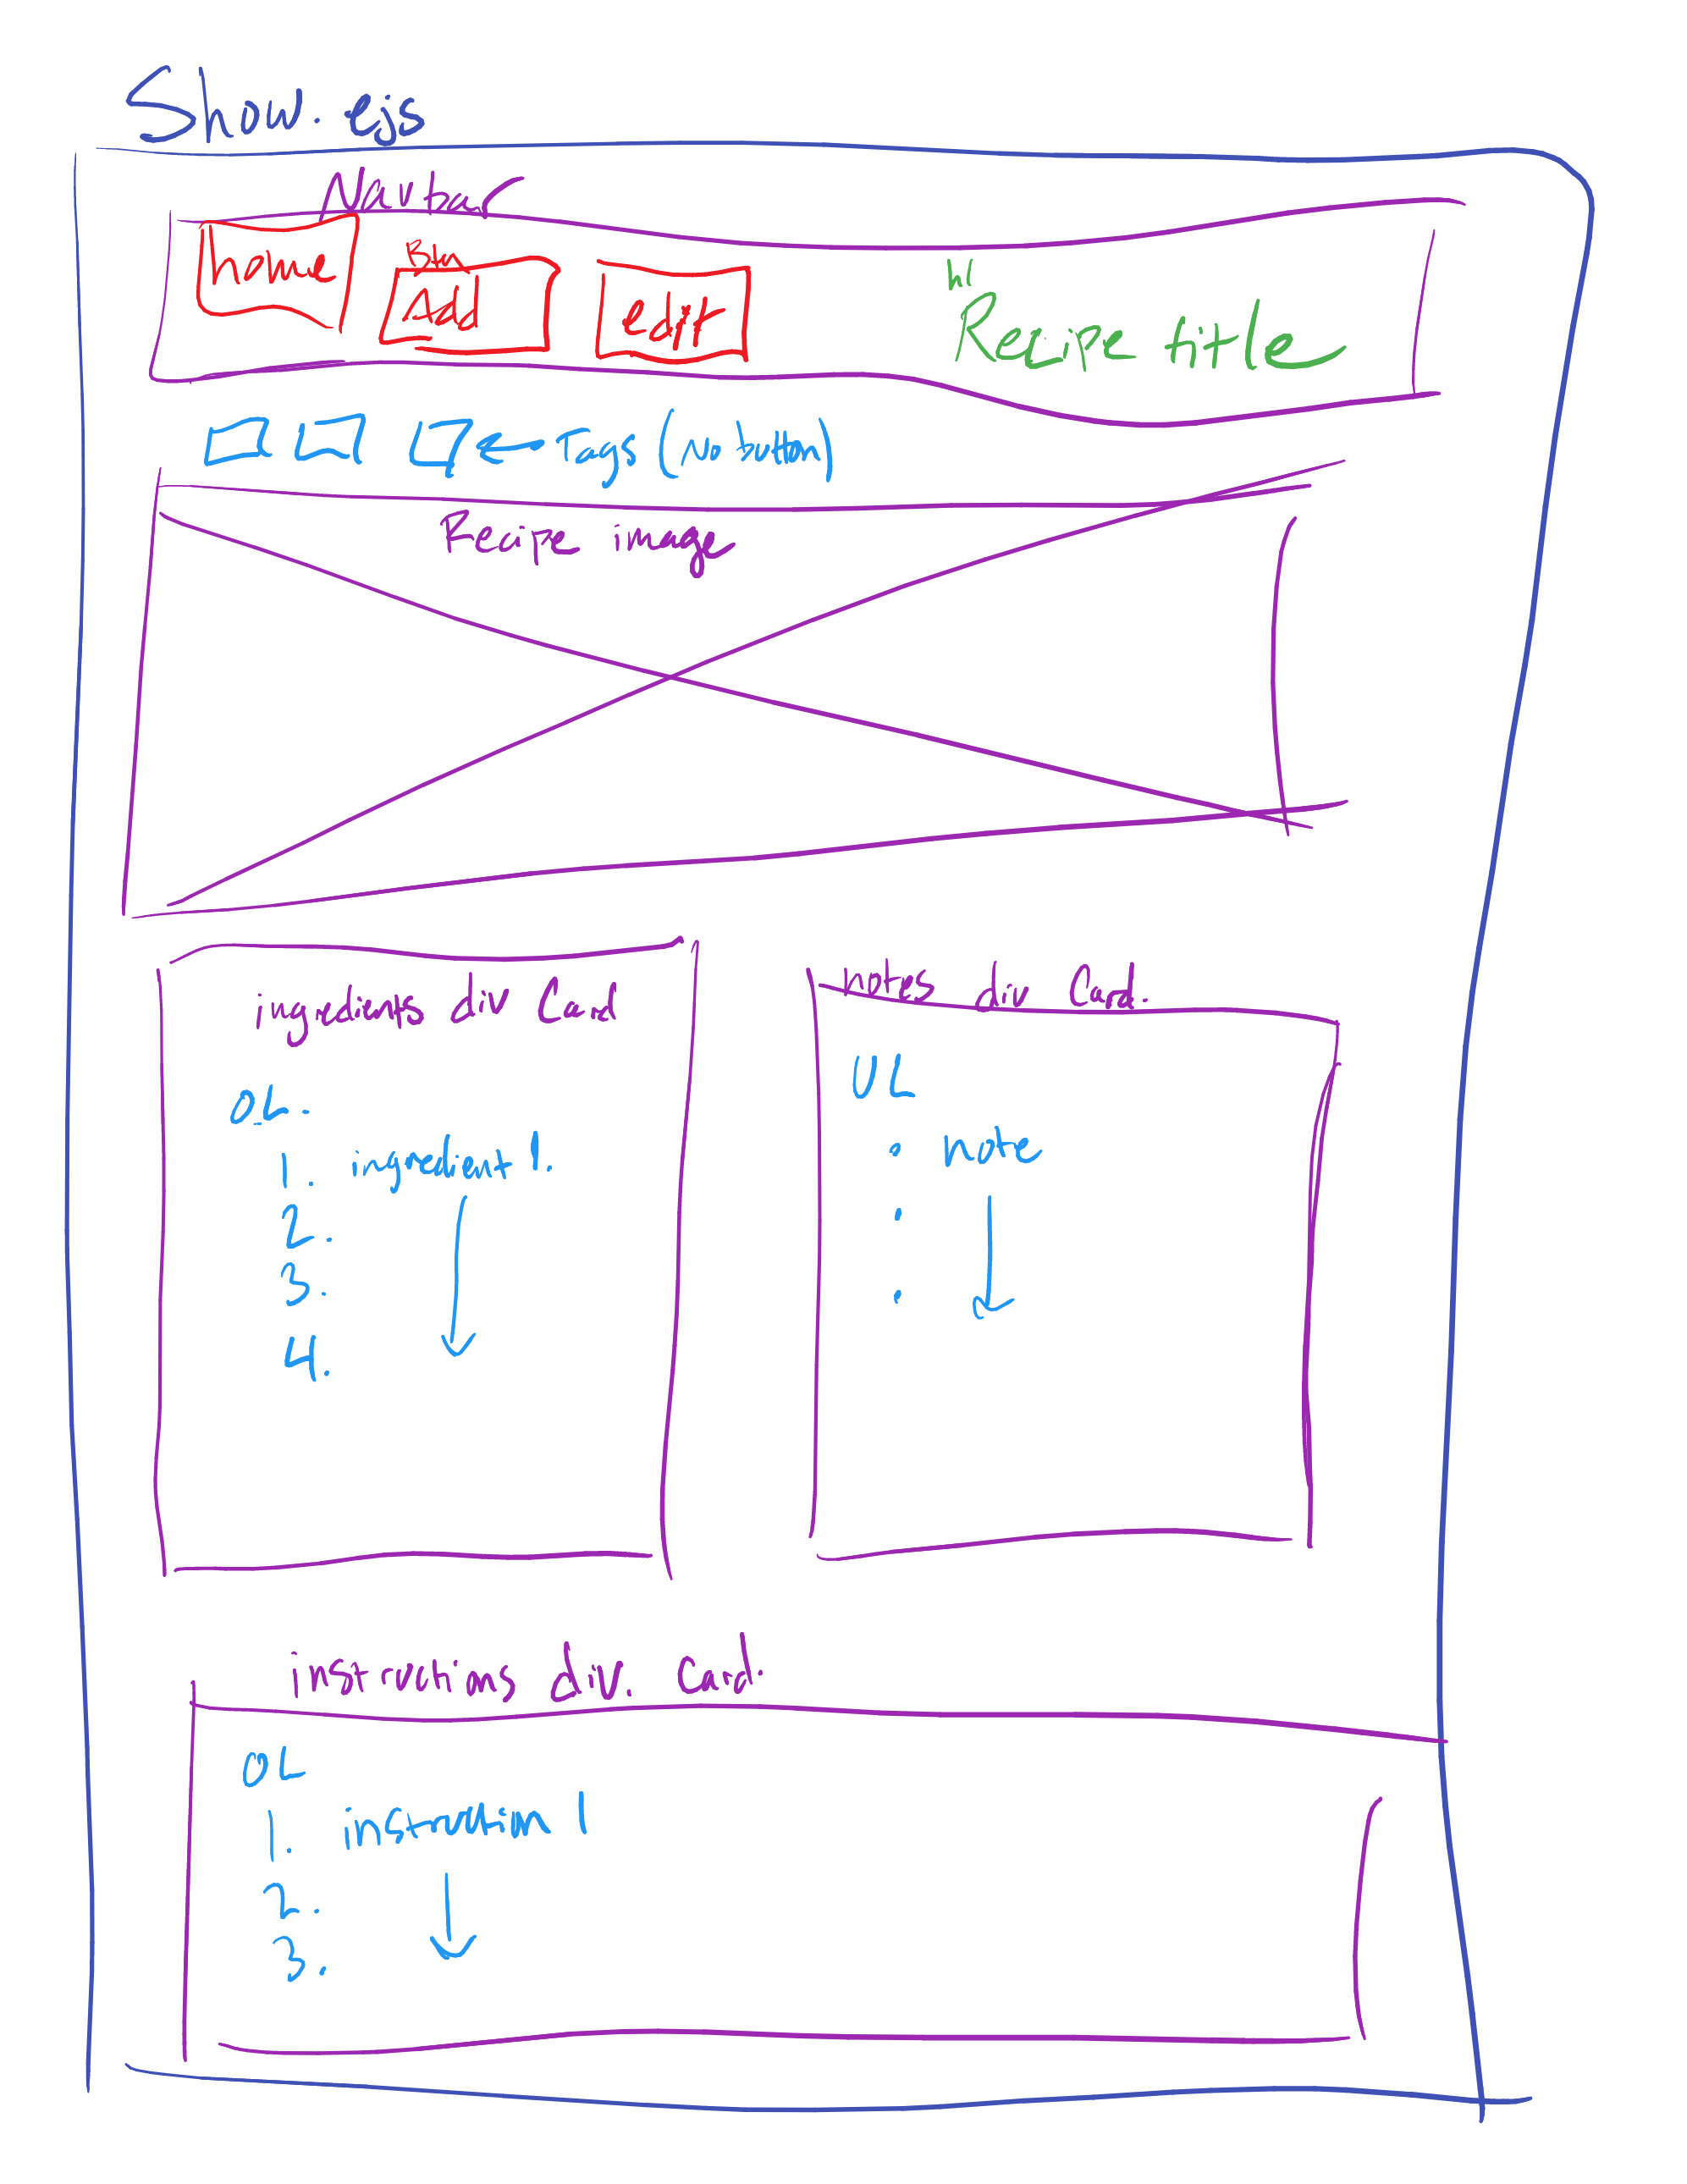 Show.ejs
Navbar
home
Btn
Add
edit
h1
Recipe title
Tags (No button)
Recipe image
ingredients div Card
OL.
1. ingredient 1.
2.
3.
4.
notes div Card.
UL
• note
•
•
instructions div. Card.
OL
1. instruction 1
2.
3.